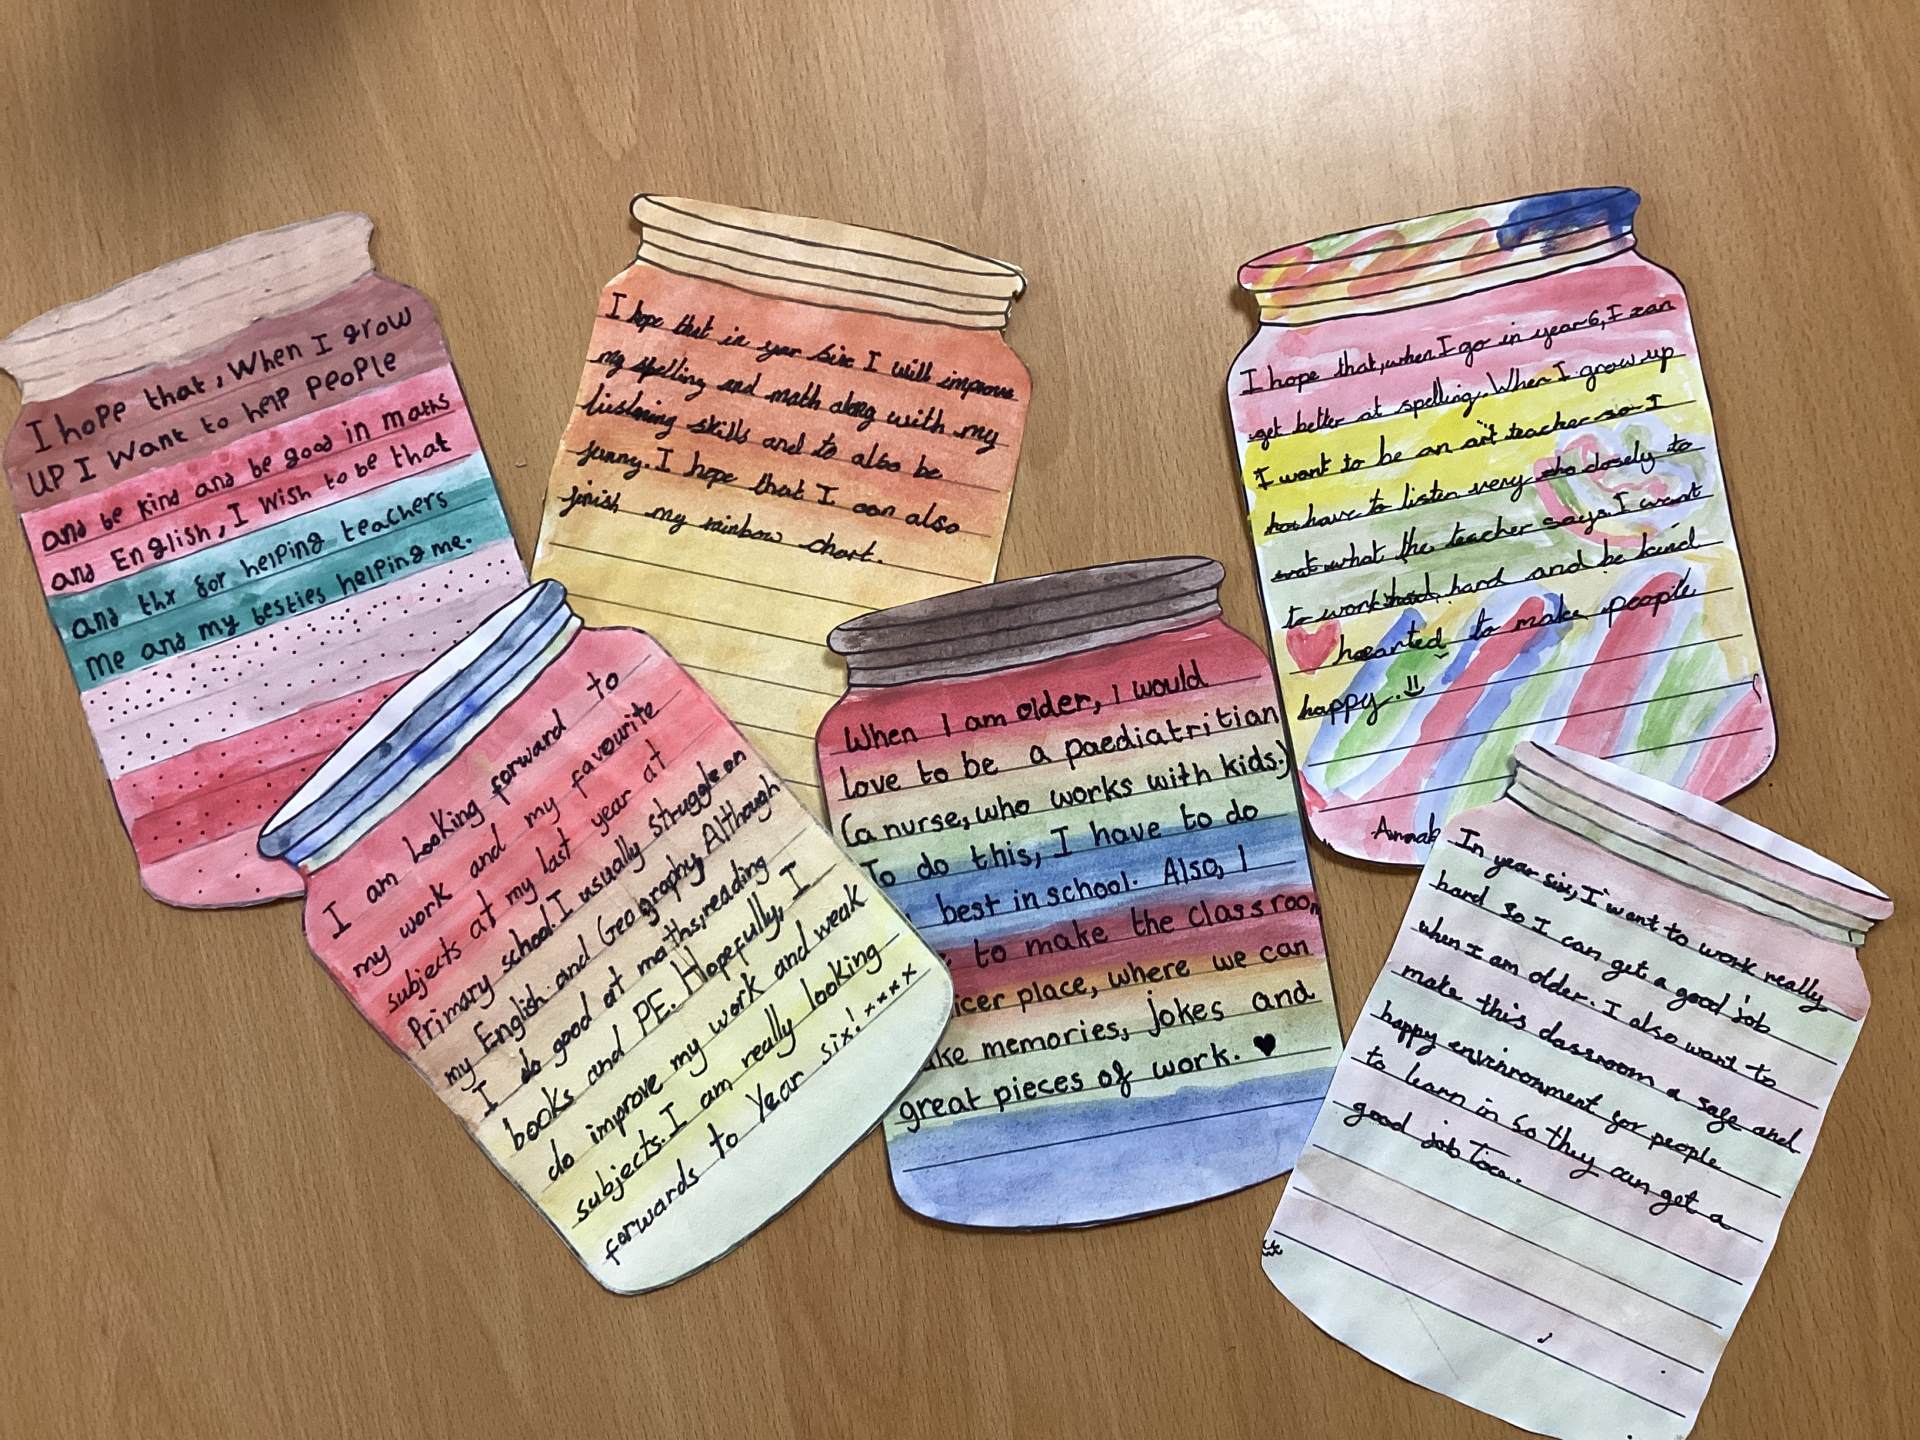 I hope that, When I grow
UP I Want to help PeoPle
and be kind and be good in maths
and English, I wish to be that
and thx for helping teachers
me and my besties helping me.
I hope that in year six I will improve
my spelling and math along with my
listening skills and to also be
funny. I hope that I can also
finish my rainbow chart.
I hope that, when I go in year 6, I can
get better at spelling. When I grow up
I want to be an art teacher so I
have to listen very closely to
what the teacher says. I want
to work hard and be kind
hearted to make people
happy.
Annab
I am Looking forward to
my work and my favourite
subjects at my last year at
Primary school. I usually struggle on
my English and Geography. Although
I do good at maths, reading
books and PE. Hopefully, I
do improve my work and weak
subjects. I am really looking
forwards to Year six! xxxx
When I am older, I would
love to be a paediatritian
(a nurse, who works with kids.)
To do this, I have to do
best in school. Also, I
to make the classroom
icer place, where we can
ake memories, jokes and
great pieces of work. ♥
In year six, I want to work really
hard so I can get a good job
when I am older. I also want to
make this classroom a safe and
happy environment for people
to learn in So they can get a
good job Too.